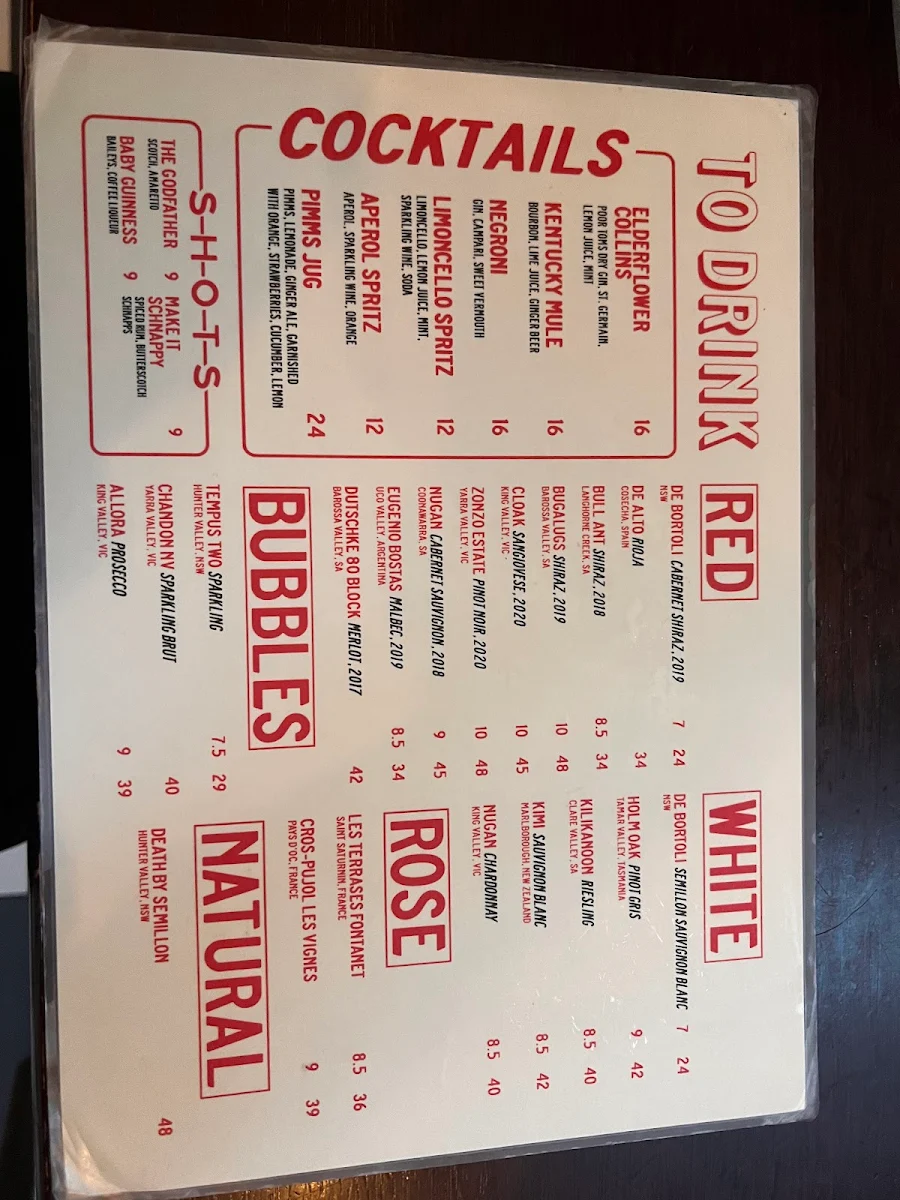 TO DRINK
COCKTAILS
ELDERFLOWER
COLLINS 16
POOR TOMS DRY GIN, ST. GERMAIN,
LEMON JUICE, MINT
KENTUCKY MULE 16
BOURBON, LIME JUICE, GINGER BEER
NEGRONI 16
GIN, CAMPARI, SWEET VERMOUTH
LIMONCELLO SPRITZ 12
LIMONCELLO, LEMON JUICE, MINT,
SPARKLING WINE, SODA
APEROL SPRITZ 12
APEROL, SPARKLING WINE, ORANGE
PIMMS JUG 24
PIMMS, LEMONADE, GINGER ALE, GARNISHED
WITH ORANGE, STRAWBERRIES, CUCUMBER, LEMON
S-H-O-T-S
THE GODFATHER 9
SCOTCH, AMARETTO
BABY GUINNESS 9
BAILEYS, COFFEE LIQUEUR
MAKE IT
SCHNAPPY 9
SPICED RUM, BUTTERSCOTCH
SCHNAPPS
RED
DE BORTOLI CABERNET SHIRAZ, 2019 7 24
NSW
DE ALTO RIOJA 34
COSECHA, SPAIN
BULL ANT SHIRAZ, 2018 8.5 34
LANGHORNE CREEK, SA
BUGALUGS SHIRAZ, 2019 10 48
BAROSSA VALLEY, SA
CLOAK SANGIOVESE, 2020 10 45
KING VALLEY, VIC
ZONZO ESTATE PINOT NOIR, 2020 10 48
YARRA VALLEY, VIC
NUGAN CABERNET SAUVIGNON, 2018 9 45
COONAWARRA, SA
EUGENIO BOSTAS MALBEC, 2019 8.5 34
UCO VALLEY, ARGENTINA
DUTSCHKE 80 BLOCK MERLOT, 2017 42
BAROSSA VALLEY, SA
BUBBLES
TEMPUS TWO SPARKLING 7.5 29
HUNTER VALLEY, NSW
CHANDON NV SPARKLING BRUT 40
YARRA VALLEY, VIC
ALLORA PROSECCO 9 39
KING VALLEY, VIC
WHITE
DE BORTOLI SEMILLON SAUVIGNON BLANC 7 24
NSW
HOLM OAK PINOT GRIS 9 42
TAMAR VALLEY, TASMANIA
KILIKANOON RIESLING 8.5 40
CLARE VALLEY, SA
KIMI SAUVIGNON BLANC 8.5 42
MARLBOROUGH, NEW ZEALAND
NUGAN CHARDONNAY 8.5 40
KING VALLEY, VIC
ROSE
LES TERRASES FONTANET 8.5 36
SAINT SATURNIN, FRANCE
CROS-PUJOL LES VIGNES 9 39
PAYS D'OC, FRANCE
NATURAL
DEATH BY SEMILLON 48
HUNTER VALLEY, NSW